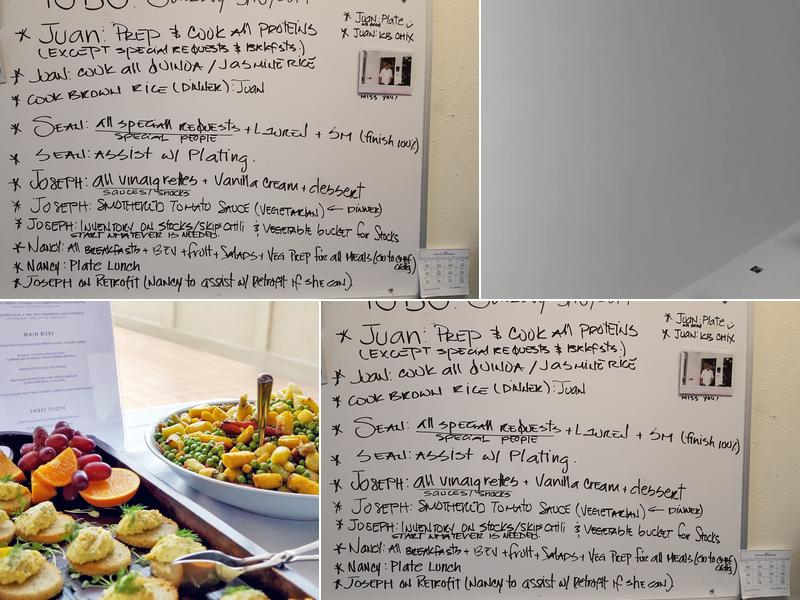 TO DO: Sunday
* Juan: Prep & Cook All Proteins
(Except special requests & Brkfsts.)
* Juan: cook all Quinoa / Jasmine Rice
* Cook Brown Rice (Dinner): Juan
* Sean: All special requests + Lauren + SM (finish 100%)
special people
* Sean: Assist w/ Plating.
* Joseph: all vinaigrettes + Vanilla cream + dessert
sauces/stocks
* Joseph: Smothered Tomato Sauce (Vegetarian) ← Dinner)
* Joseph: Inventory on stocks/skip chili & vegetable bucket for Stocks
start whatever is needed.
* Nancy: All Breakfasts + BEV + fruit + Salads + Veg Prep for all Meals (Go to Chef
* Nancy: Plate Lunch
* Joseph on Retrofit (Nancy to assist w/ Retrofit if she can)
* Juan: Plate
* Juan: KB CHIX
MISS YOU!
MAIN BITES
TO DO: Sunday
* Juan: Prep & Cook All Proteins
(Except special requests & Brkfsts.)
* Juan: cook all Quinoa / Jasmine Rice
* Cook Brown Rice (Dinner): Juan
* Sean: All special requests + Lauren + SM (finish 100%)
special people
* Sean: Assist w/ Plating.
* Joseph: all vinaigrettes + Vanilla cream + dessert
sauces/stocks
* Joseph: Smothered Tomato Sauce (Vegetarian) ← Dinner)
* Joseph: Inventory on stocks/skip chili & vegetable bucket for Stocks
start whatever is needed.
* Nancy: All Breakfasts + BEV + fruit + Salads + Veg Prep for all Meals (Go to Chef
* Nancy: Plate Lunch
* Joseph on Retrofit (Nancy to assist w/ Retrofit if she can)
* Juan: Plate
* Juan: KB CHIX
MISS YOU!